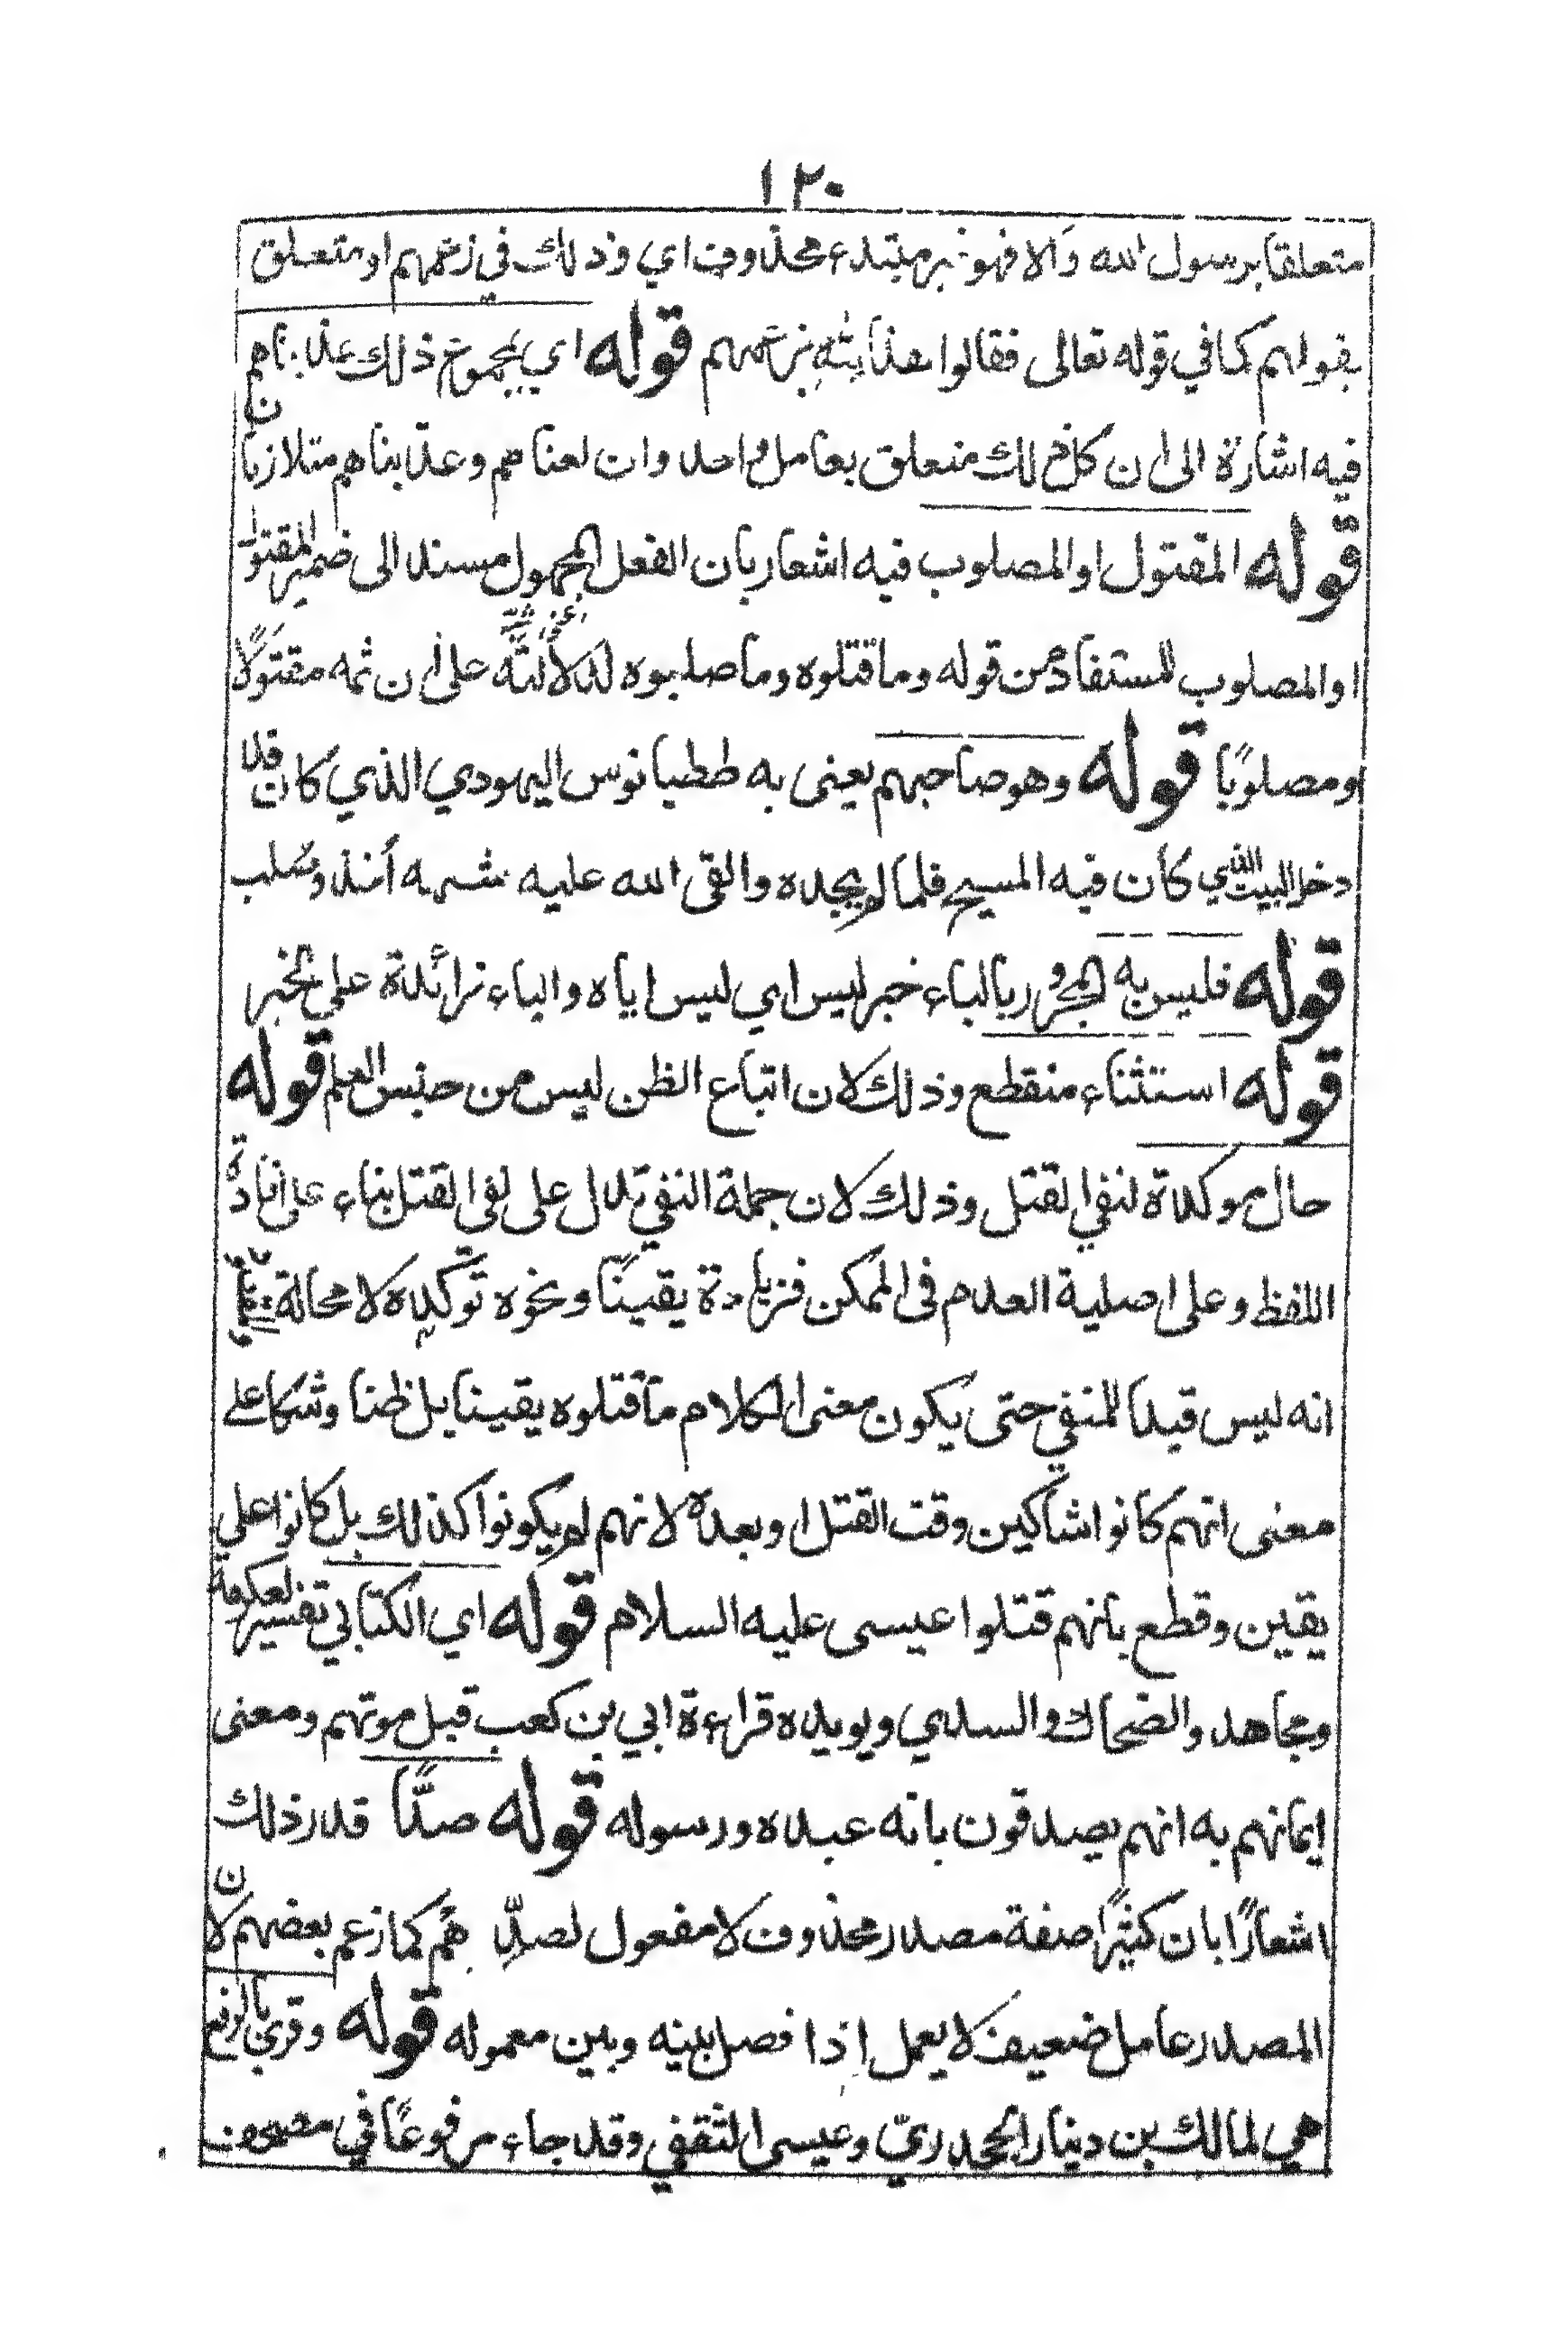 ١٢٠
متعلقا برسول الله والا فهو خبر مبتدء محذوف اي وذلك في زعمهم او متعلق
بقولهم كما في قوله تعالى فقالوا هذا لله بزعمهم قوله اي بمجموع ذلك عذبناهم
فيه اشارة الى ان كل ذلك متعلق بعامل واحد وان لعناهم وعذبناهم متلازمان
قوله المقتول او المصلوب فيه اشعار بان الفعل المجهول مسند الى ضمير المقتول
او المصلوب المستفاد من قوله وما قتلوه وما صلبوه لدلالته على ان ثمه مقتولًا
ومصلوبًا قوله وهو صاحبهم يعنى به ططيانوس اليهودي الذي كان قد
دخل البيت الذي كان فيه المسيح فلما لم يجده والقى الله عليه شبهه أخذ وصلب
قوله فليس به المجرور بالباء خبر ليس اي ليس اياه والباء زائدة على الخبر
قوله استثناء منقطع وذلك لان اتباع الظن ليس من جنس العلم قوله
حال موكدة لنفي القتل وذلك لان جملة النفي تدل على نفى القتل بناء على افادة
اللفظ وعلى اصلية العدم فى الممكن فزيادة يقينًا ونحوه توكده لا محالة
انه ليس قيدا للمنفي حتى يكون معنى الكلام ما قتلوه يقينا بل ظنا وشكا على
معنى انهم كانوا شاكين وقت القتل او بعده لانهم لم يكونوا كذلك بل كانوا على
يقين وقطع بانهم قتلوا عيسى عليه السلام قوله اي الكتابي تفسير لعكرمة
ومجاهد والضحاك والسدي ويويده قراءة ابي بن كعب قبل موتهم ومعنى
ايمانهم به انهم يصدقون بانه عبده ورسوله قوله صدًّا قدر ذلك
اشعارًا بان كثيرًا صفة مصدر محذوف لا مفعول لصدِّهم كما زعم بعضهم لان
المصدر عامل ضعيف لا يعمل إذا فصل بينه وبين معموله قوله وقري بالرفع
هي لمالك بن دينار الجحدريّ وعيسى الثقفي وقد جاء مرفوعًا في مصحف